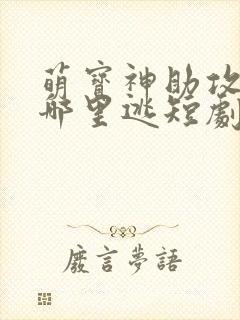 萌寶神助攻
哪里逃短劇
廢言夢語